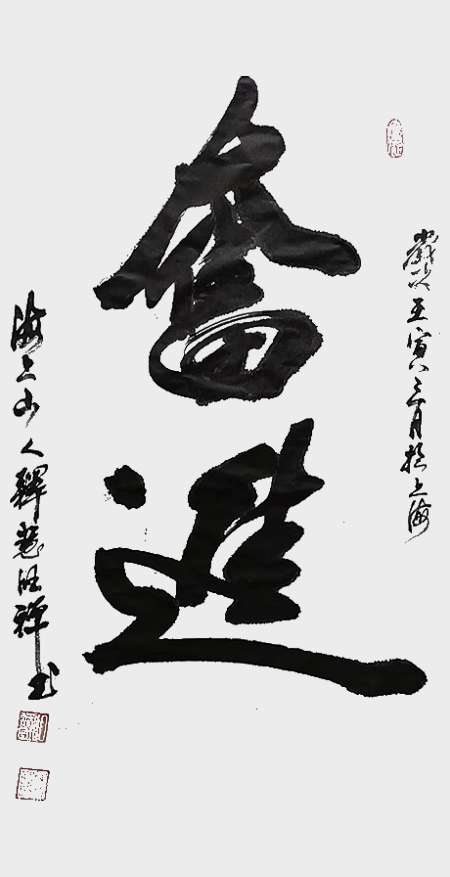 歲次壬寅三月於上海
奮進
海上山人釋慧旺禪書